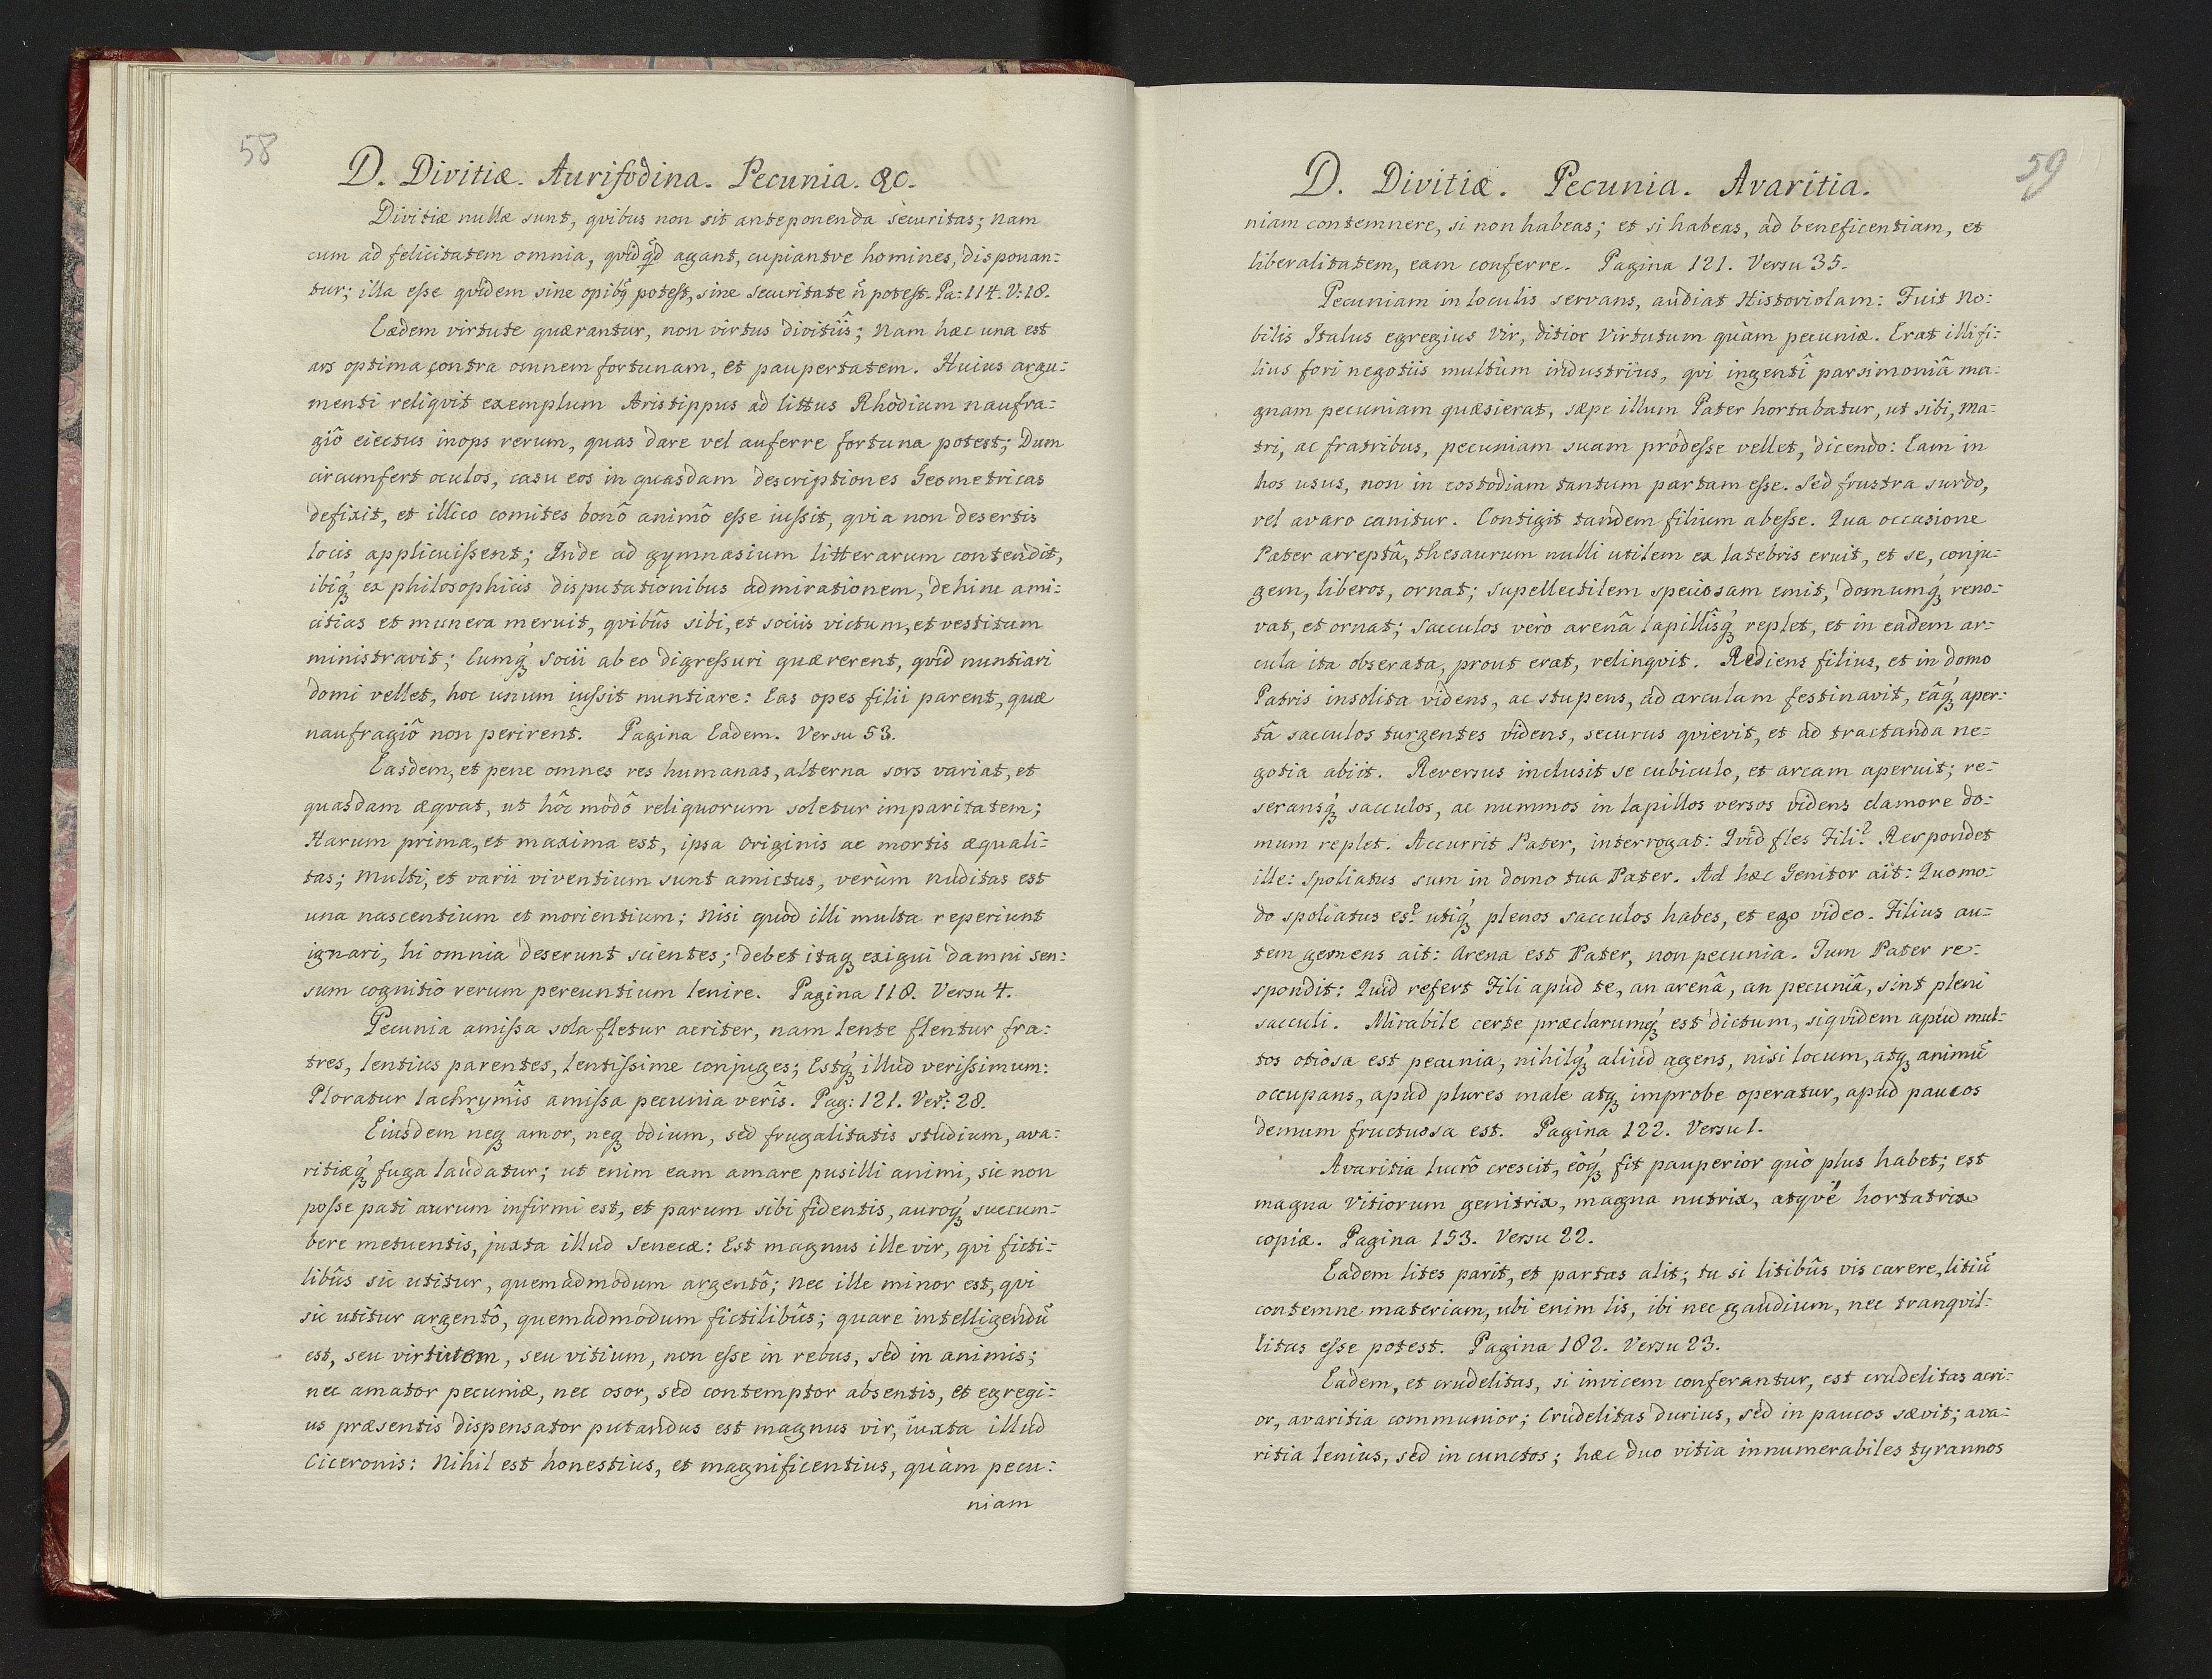 58
D. Divitiæ. Aurifodina. Pecunia. &c.
Divitiæ nullæ sunt, qvibus non sit anteponenda securitas; nam
cum ad felicitatem omnia, qvidqd agant, cupiantve homines, disponan-
tur; illa esse qvidem sine opibq potest, sine securitate n̄ potest. Pa: 114. V: 18.
Eædem virtute quærantur, non virtus divitiîs; nam hæc una est
ars optima contra omnem fortunam, et paupertatem. Huius argu-
menti reliqvit exemplum Aristippus ad littus Rhodium naufra-
giô eiectus inops rerum, quas dare vel auferre fortuna potest; Dum
circumfert oculos, casu eos in quasdam descriptiones Geometricas
defixit, et illico comites bonô animô esse iussit, qvia non desertis
locis applicuissent; Inde ad gymnasium litterarum contendit,
ibiq́ꝫ ex philosophicis disputationibus admirationem, dehinc ami-
citias et munera meruit, qvibûs sibi, et sociis victum, et vestitum
ministravit; Cumq́ꝫ socii ab eo digressuri quærerent, qvid nuntiari
domi vellet, hoc unum iussit nuntiare: Eas opes filii parent, quæ
naufragiô non perirent. Pagina Eadem. Versu 53.
Easdem, et pene omnes res humanas, alterna sors variat, et
quasdam æqvat, ut hôc modô reliquorum soletur imparitatem;
Harum prima, et maxima est, ipsa originis ac mortis æquali-
tas; Multi, et varii viventium sunt amictus, verùm nuditas est
una nascentium et morientium; nisi quòd illi multa reperiunt
ignari, hi omnia deserunt scientes; debet itaqꝫ exigui damni sen-
sum cognitio rerum pereuntium lenire. Pagina 118. Versu 4.
Pecunia amissa sola fletur acriter, nam lente flentur fra-
tres, lentius parentes, lentissime conjuges; Estq́ꝫ illud verissimum:
Ploratur lachrymîs amissa pecunia verîs. Pag: 121. Ver: 28.
Eiusdem neqꝫ amor, neqꝫ odium, sed frugalitatis studium, ava-
ritiæq́ꝫ fuga laudatur; ut enim eam amare pusilli animi, sic non
posse pati aurum infirmi est, et parum sibi fidentis, auroq́ꝫ succum-
bere metuentis, juxta illud Senecæ: Est magnus ille vir, qvi ficti-
libûs sic utitur, quemadmodum argentô; nec ille minor est, qvi
sic utitur argentô, quemadmodum fictilibûs; quare intelligendū
est, seu virtutem, seu vitium, non esse in rebus, sed in animis;
nec amator pecuniæ, nec osor, sed contemptor absentis, et egregi-
us præsentis dispensator putandus est magnus vir, iuxta illud
Ciceronis: Nihil est honestius, et magnificentius, quàm pecu-
niam
59
D. Divitiæ. Pecunia. Avaritia.
niam contemnere, si non habeas; et si habeas, ad beneficentiam, et
liberalitatem, eam conferre. Pagina 121. Versu 35.
Pecuniam in loculis servans, audiat Historiolam: Fuit No-
bilis Italus egregius Vir, ditior Virtutum quàm pecuniæ. Erat illi fi-
lius fori negotiis multùm industrius, qvi ingentî parsimoniâ ma-
gnam pecuniam quæsierat, sæpe illum Pater hortabatur, ut sibi, Ma-
tri, ac fratribus, pecuniam suam prodesse vellet, dicendo: Eam in
hos usus, non in costodiam tantum partam esse. Sed frustra surdo,
vel avaro canitur. Contigit tandem filium abesse. Qua occasione
Pater arreptâ, thesaurum nulli utilem ex latebris eruit, et se, conju-
gem, liberos, ornat; supellectilem speciosam emit, domumq́ꝫ reno-
vat, et ornat; sacculos verò arenâ lapillîsq́ꝫ replet, et in eadem ar-
cula ita obserata, prout erat, relinqvit. Rediens filius, et in domo
Patris insolita videns, ac stupens, ad arculam festinavit, eâq́ꝫ aper-
tâ sacculos turgentes videns, securus qvievit, et ad tractanda ne-
gotia abiit. Reversus inclusit se cubiculo, et arcam aperuit; re-
seransq́ꝫ sacculos, ac nummos in lapillos versos videns clamore do-
mum replet. Accurrit Pater, interrogat: Qvid fles Fili? Respondet
ille: spoliatus sum in domo tua Pater. Ad hæc Genitor ait: Quomo-
do spoliatus es? utiq́ꝫ plenos sacculos habes, et ego video. Filius au-
tem gemens ait: arena est Pater, non pecunia. Tum Pater re-
spondit: Quid refert Fili apud te, an arenâ, an pecuniâ, sint pleni
sacculi. Mirabile certe præclarumq́ꝫ est dictum, siqvidem apud mul-
tos otiosa est pecunia, nihilq́ꝫ aliud agens, nisi locum, atqꝫ animū
occupans, apud plures male atqꝫ improbe operatur, apud paucos
demum fructuosa est. Pagina 122. Versu 1.
Avaritia lucrô crescit, eôq́ꝫ fit pauperior quò plus habet; est
magna Vitiorum genitrix, magna nutrix, atqvé hortatrix
copiæ. Pagina 153. Versu 22.
Eadem lites parit, et partas alit; tu si litibûs vis carere, litiū
contemne materiam, ubi enim lis, ibi nec gaudium, nec tranqvil-
litas esse potest. Pagina 182. Versu 23.
Eadem, et crudelitas, si invicem conferantur, est crudelitas acri-
or, avaritia communior; Crudelitas durius, sed in paucos sævit; ava-
ritia lenius, sed in cunctos; hæc duo vitia innumerabiles tyrannos